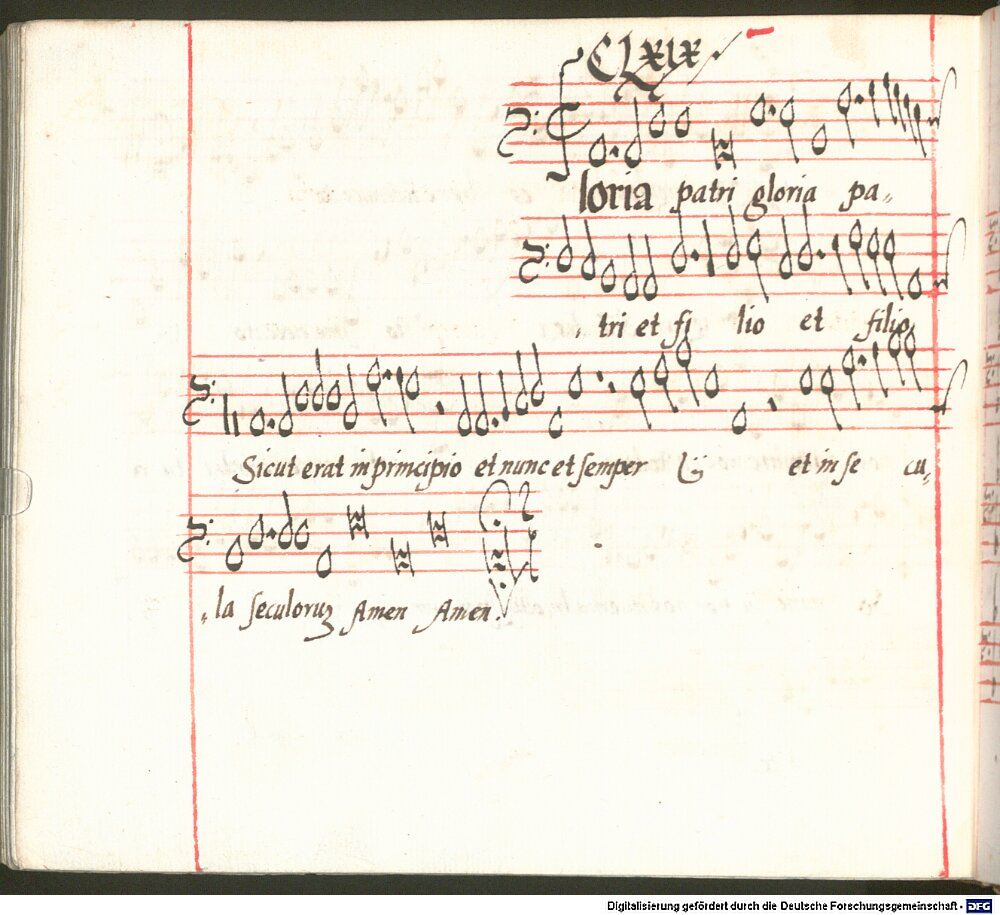 CLxix
loria patri gloria pa„
„tri et fi lio et filio,
Sicut erat in principio et nunc et semper ij et in se cu„
„la seculoruz Amen Amen.
Digitalisierung gefördert durch die Deutsche Forschungsgemeinschaft - DFG